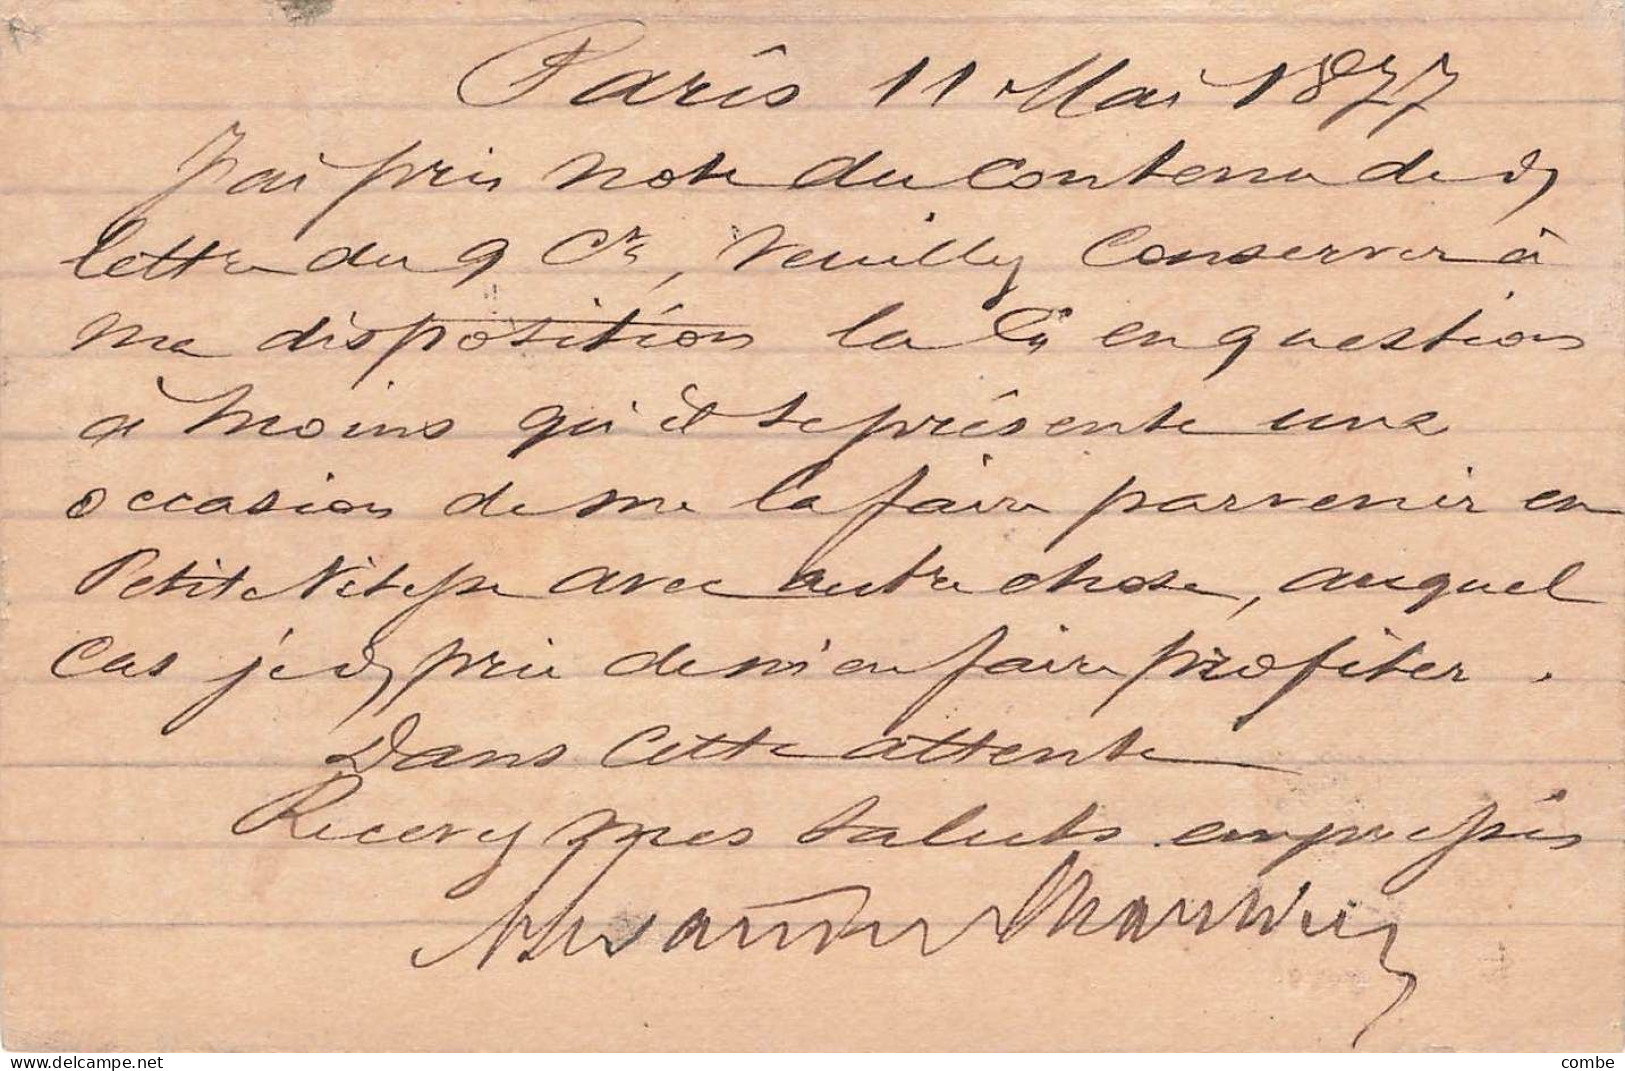 Paris 11 Mai 1877
J'ai pris note du contenu de v/
lettre du 9 Ct, veuillez conserver à
ma disposition la en question
à moins qu'il se présente une
occasion de me la faire parvenir en
Petite Vitesse avec autre chose, auquel
cas je v/ prie de m'en faire profiter.
Dans cette attente
Recevez mes saluts empressés
Alexandre
delcampe.net
combe